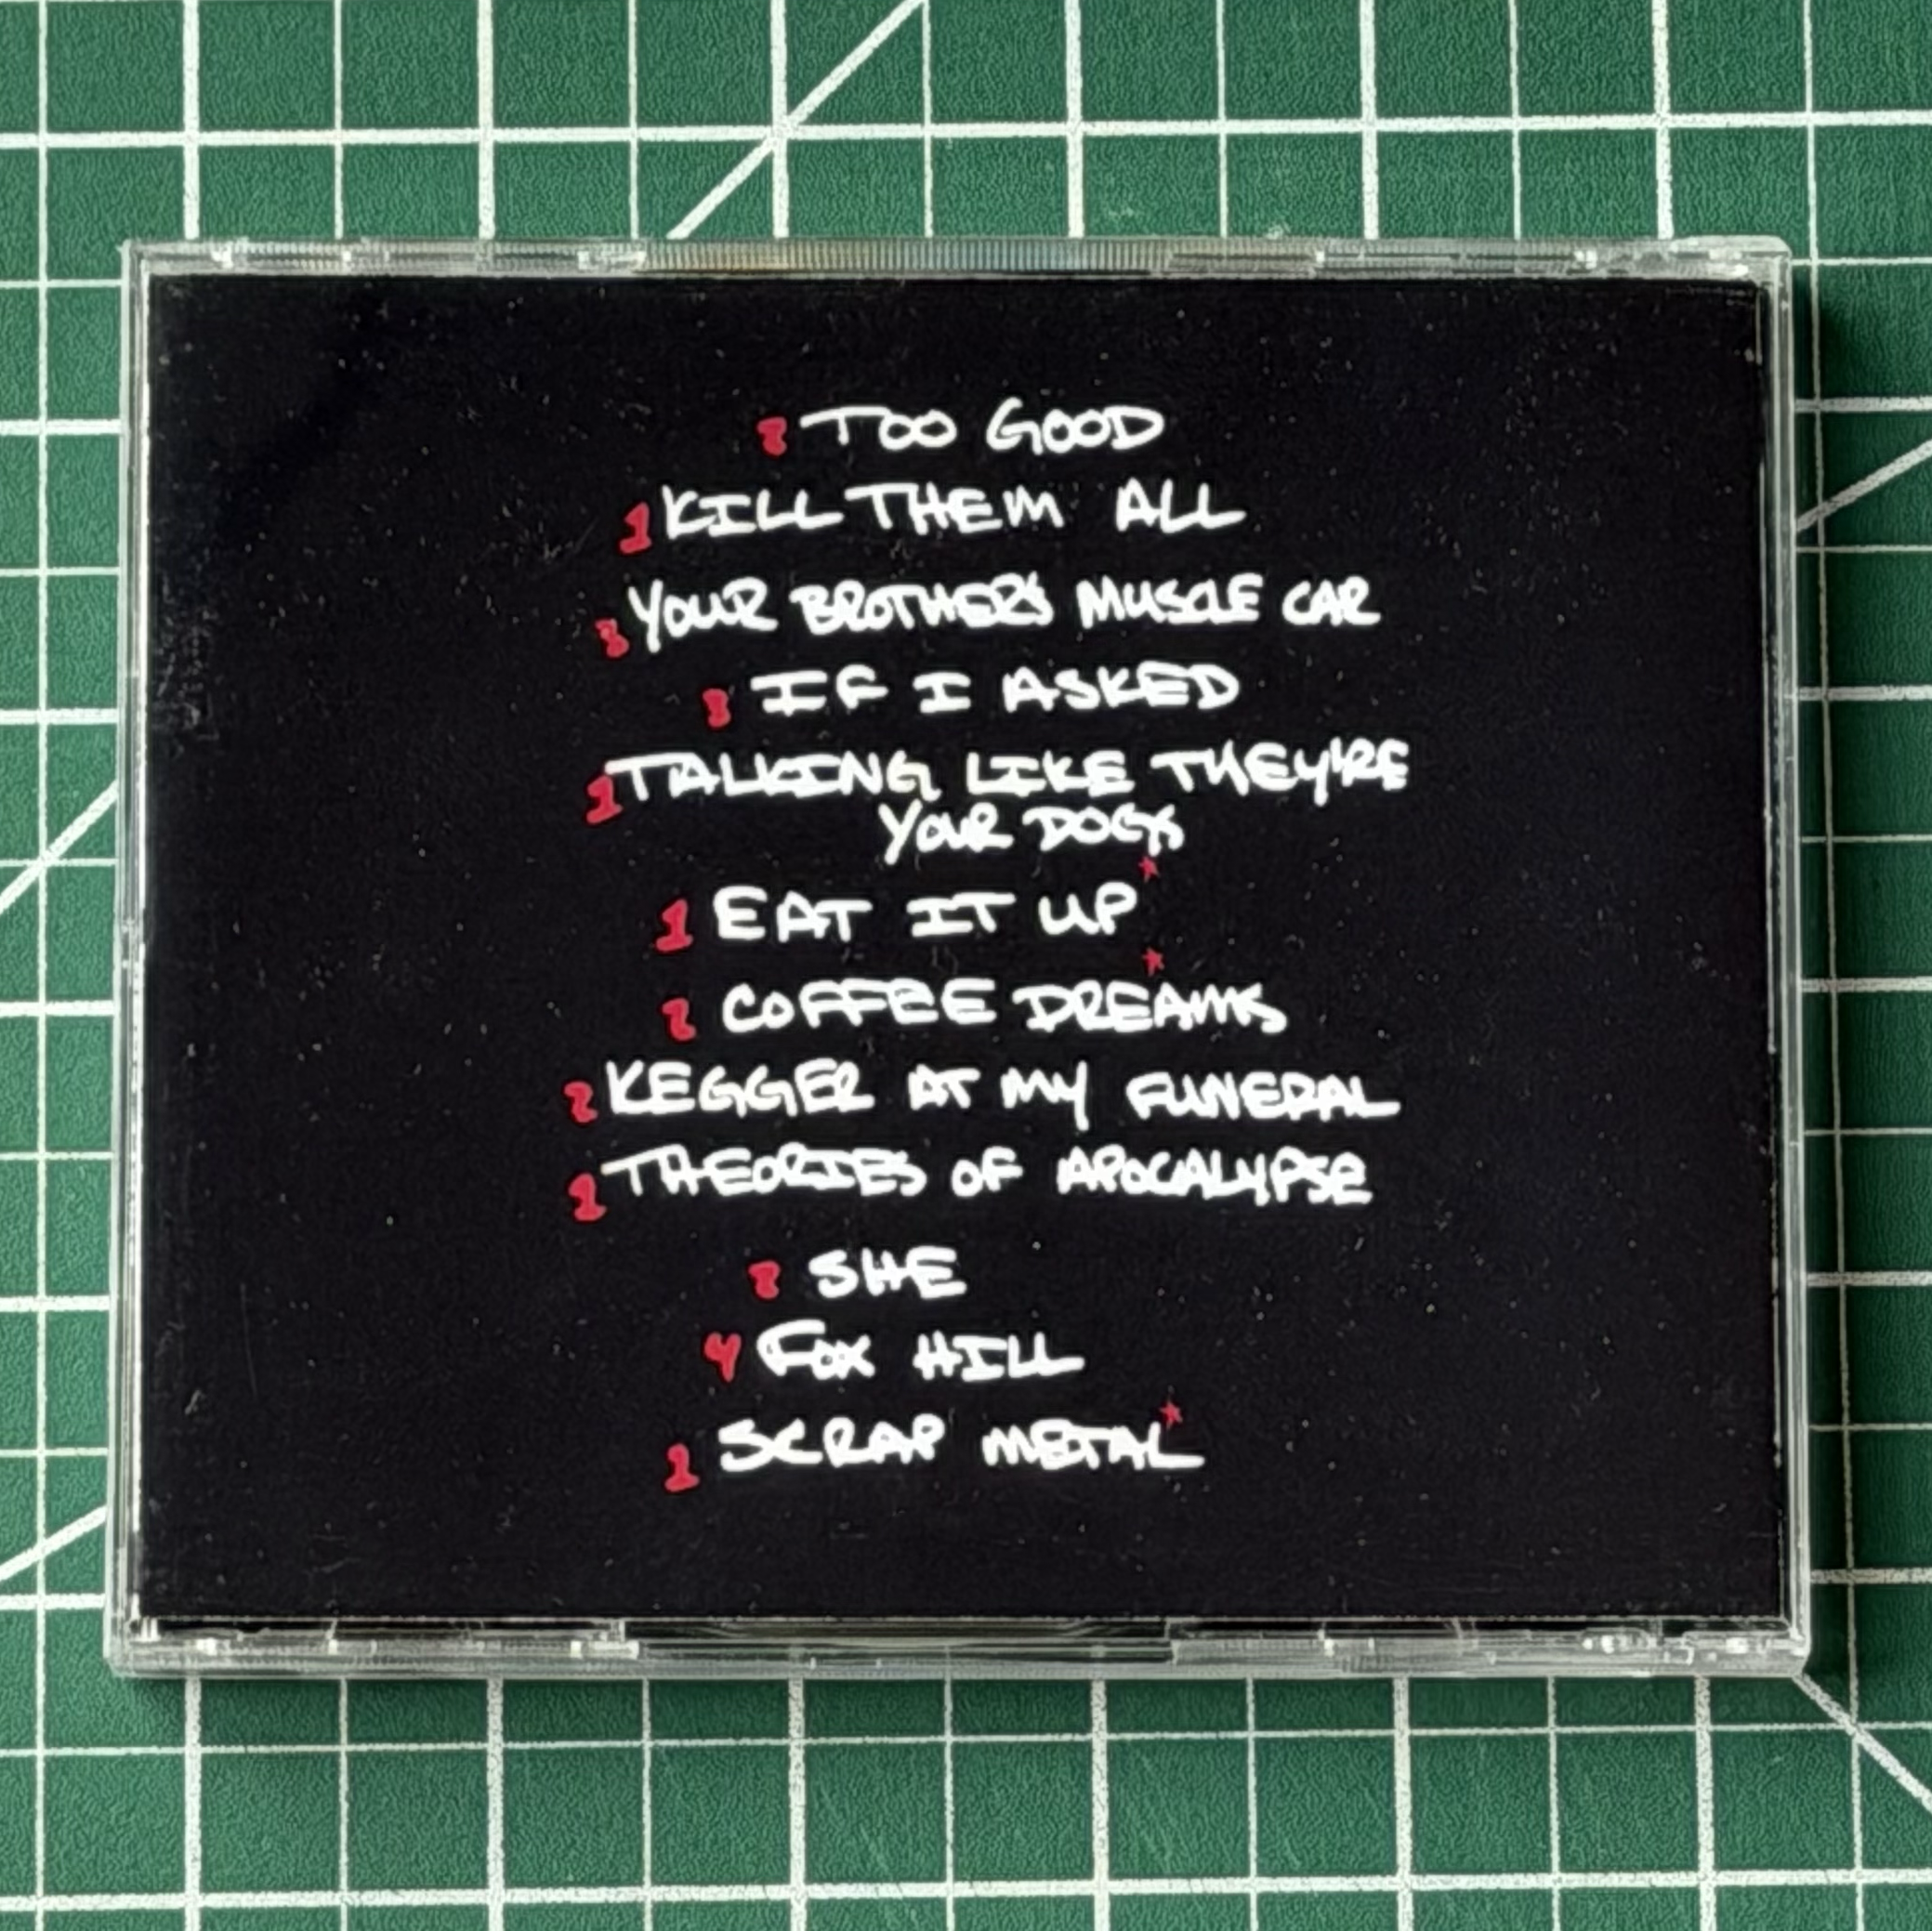 TOO GOOD
1 KILL THEM ALL
YOUR BROTHERS MUSCLE CAR
IF I ASKED
1 TALKING LIKE THEY'RE
YOUR DOGS
1 EAT IT UP*
2 COFFEE DREAMS
2 KEGGER AT MY FUNERAL
1 THEORIES OF APOCALYPSE
SHE
4 FOX HILL
1 SCRAP METAL*